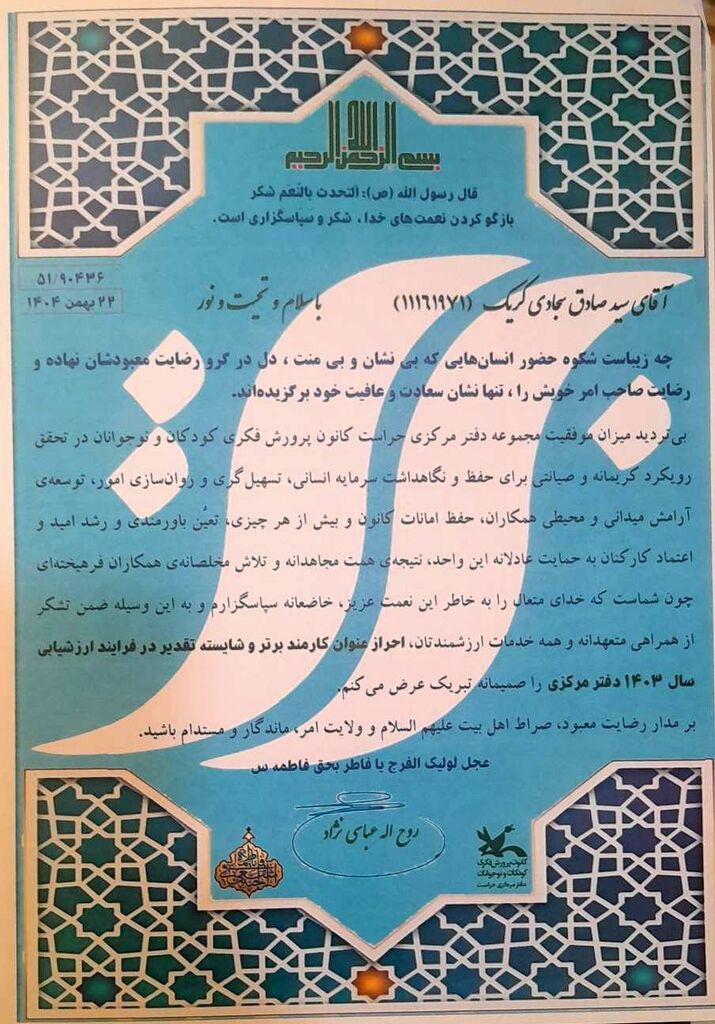 بسم الله الرحمن الرحیم
قال رسول الله (ص): التحدث بالنعم شکر
بازگو کردن نعمت‌های خدا، شکر و سپاسگزاری است.
۵۱/۹۰۴۳۶
۲۲ بهمن ۱۴۰۴
آقای سید صادق سجادی کریک (۱۱۱۶۱۹۷۱) باسلام و تحیت و نور
چه زیباست شکوه حضور انسان‌هایی که بی نشان و بی منت، دل در گرو رضایت معبودشان نهاده و
رضایت صاحب امر خویش را، تنها نشان سعادت و عافیت خود برگزیده‌اند.
بی‌تردید میزان موفقیت مجموعه دفتر مرکزی حراست کانون پرورش فکری کودکان و نوجوانان در تحقق
رویکرد کریمانه و صیانتی برای حفظ و نگاهداشت سرمایه انسانی، تسهیل‌گری و روان‌سازی امور، توسعه‌ی
آرامش میدانی و محیطی همکاران، حفظ امانات کانون و بیش از هر چیزی، تعیّن باورمندی و رشد امید و
اعتماد کارکنان به حمایت عادلانه این واحد، نتیجه‌ی همت مجاهدانه و تلاش مخلصانه‌ی همکاران فرهیخته‌ای
چون شماست که خدای متعال را به خاطر این نعمت عزیز، خاضعانه سپاسگزارم و به این وسیله ضمن تشکر
از همراهی متعهدانه و همه خدمات ارزشمندتان، احراز عنوان کارمند برتر و شایسته تقدیر در فرایند ارزشیابی
سال ۱۴۰۳ دفتر مرکزی را صمیمانه تبریک عرض می‌کنم.
بر مدار رضایت معبود، صراط اهل بیت علیهم السلام و ولایت امر، ماندگار و مستدام باشید.
عجل لولیک الفرج یا فاطر بحق فاطمه س
روح اله عباسی نژاد
کانون پرورش فکری
کودکان و نوجوانان
دفتر مرکزی حراست